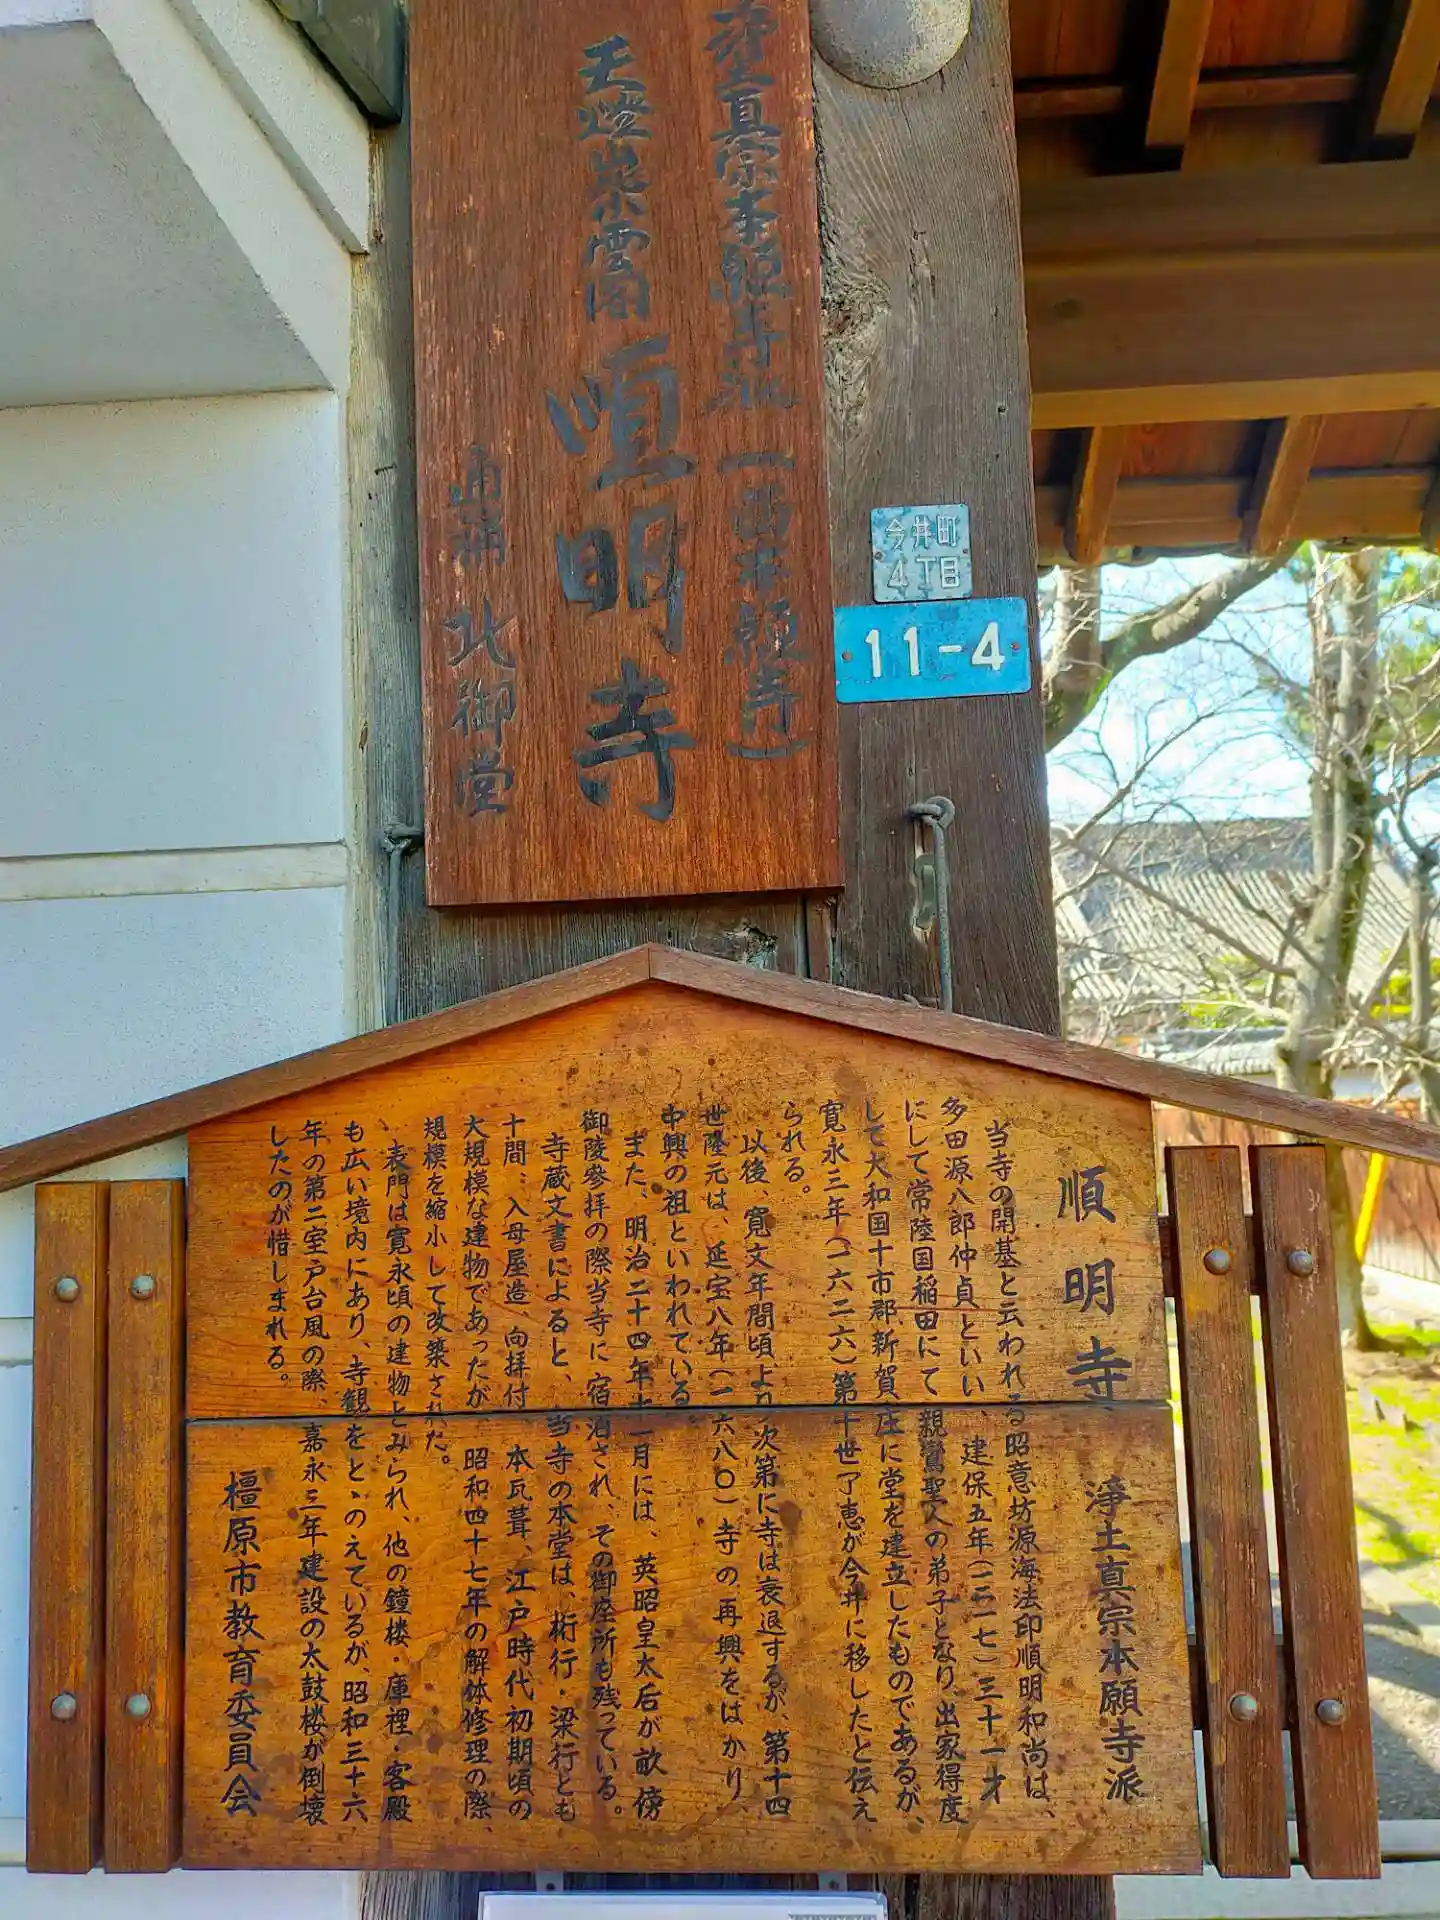 浄土真宗本願寺派(西本願寺)
順明寺
北御堂
今井町
4丁目
11-4
順明寺 浄土真宗本願寺派
当寺の開基と云われる昭意坊源海法印順明和尚は、
多田源八郎仲貞といい、建保五年(一二一七)三十一才
にして常陸国稲田にて親鸞聖人の弟子となり、出家得度
して大和国十市郡新賀庄に堂を建立したものであるが、
寛永三年(一六二六)第十世了恵が今井に移したと伝え
られる。
以後、寛文年間頃より次第に寺は衰退するが、第十四
世隆元は、延宝八年(一六八〇)寺の再興をはかり、
中興の祖といわれている。
また、明治二十四年十一月には、英昭皇太后が畝傍
御陵参拝の際当寺に宿泊され、その御座所も残っている。
寺蔵文書によると、当寺の本堂は、桁行・梁行とも
十間、入母屋造、向拝付、本瓦葺、江戸時代初期頃の
大規模な建物であったが、昭和四十七年の解体修理の際、
規模を縮小して改築された。
表門は寛永頃の建物とみられ、他の鐘楼・庫裡・客殿
も広い境内にあり、寺観をとゝのえているが、昭和三十六
年の第二室戸台風の際、嘉永三年建設の太鼓楼が倒壊
したのが惜しまれる。
橿原市教育委員会